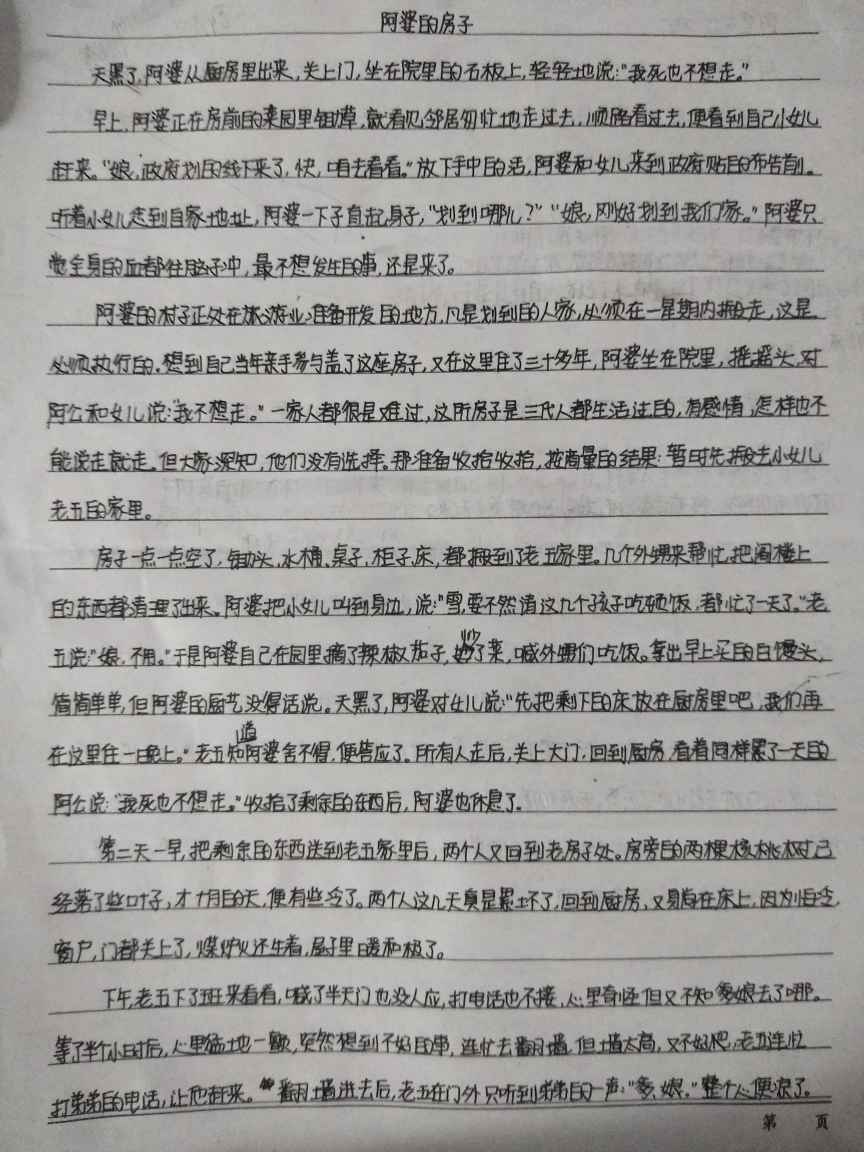 阿婆的房子
天黑了,阿婆从厨房里出来,关上门,坐在院里的石板上,轻轻地说:“我死也不想走。”
早上,阿婆正在房前的菜园里锄草,就看见邻居匆忙地走过去,顺路看过去,便看到自己小女儿
赶来。“娘,政府划的线下来了,快,咱去看看。”放下手中的活,阿婆和女儿来到政府贴的布告前。
听着小女儿念到自家地址,阿婆一下子直起身子,“划到哪儿?”“娘,刚好划到我们家。”阿婆只
觉全身的血都往脑子冲,最不想发生的事,还是来了。
阿婆的村子正处在旅游业准备开发的地方,凡是划到的人家,必须在一星期内搬走,这是
必须执行的。想到自己当年亲手参与盖了这座房子,又在这里住了三十多年,阿婆坐在院里,摇摇头,对
阿公和女儿说:“我不想走。”一家人都很是难过,这所房子是三代人都生活过的,有感情,怎样也不
能说走就走。但大家深知,他们没有选择。那准备收拾收拾,按商量的结果:暂时先搬去小女儿
老五的家里。
房子一点一点空了,锄头、水桶、桌子、柜子、床,都搬到了老五家里。几个外甥来帮忙,把阁楼上
的东西都清理了出来。阿婆把小女儿叫到身边,说:“雪,要不然请这几个孩子吃顿饭,都忙了一天了。”老
五说:“娘,不用。”于是阿婆自己在园里摘了辣椒、茄子,炒了菜,喊外甥们吃饭。拿出早上买的白馒头,
简简单单,但阿婆的厨艺没得话说。天黑了,阿婆对女儿说:“先把剩下的床放在厨房里吧,我们再
在这里住一晚上。”老五知道阿婆舍不得,便答应了。所有人走后,关上大门,回到厨房,看着同样累了一天的
阿公说:“我死也不想走。”收拾了剩余的东西后,阿婆也休息了。
第二天一早,把剩余的东西送到老五家里后,两个人又回到老房子处。房旁的两棵核桃树已
经落了些叶子,才十月的天,便有些冷了。两个人这几天真是累坏了,回到厨房,又躺在床上,因为怕冷,
窗户,门都关上了,煤炉火还生着,屋子里暖和极了。
下午,老五下了班来看看,喊了半天门也没人应,打电话也不接,心里奇怪但又不知爹娘去了哪。
等了半个小时后,心里猛地一颤,突然想到不好的事,连忙去翻墙,但墙太高,又不好爬,老五连忙
打弟弟的电话,让他赶来。翻墙进去后,老五在门外只听到弟弟的一声:“爹、娘。”整个心便凉了。
第 页